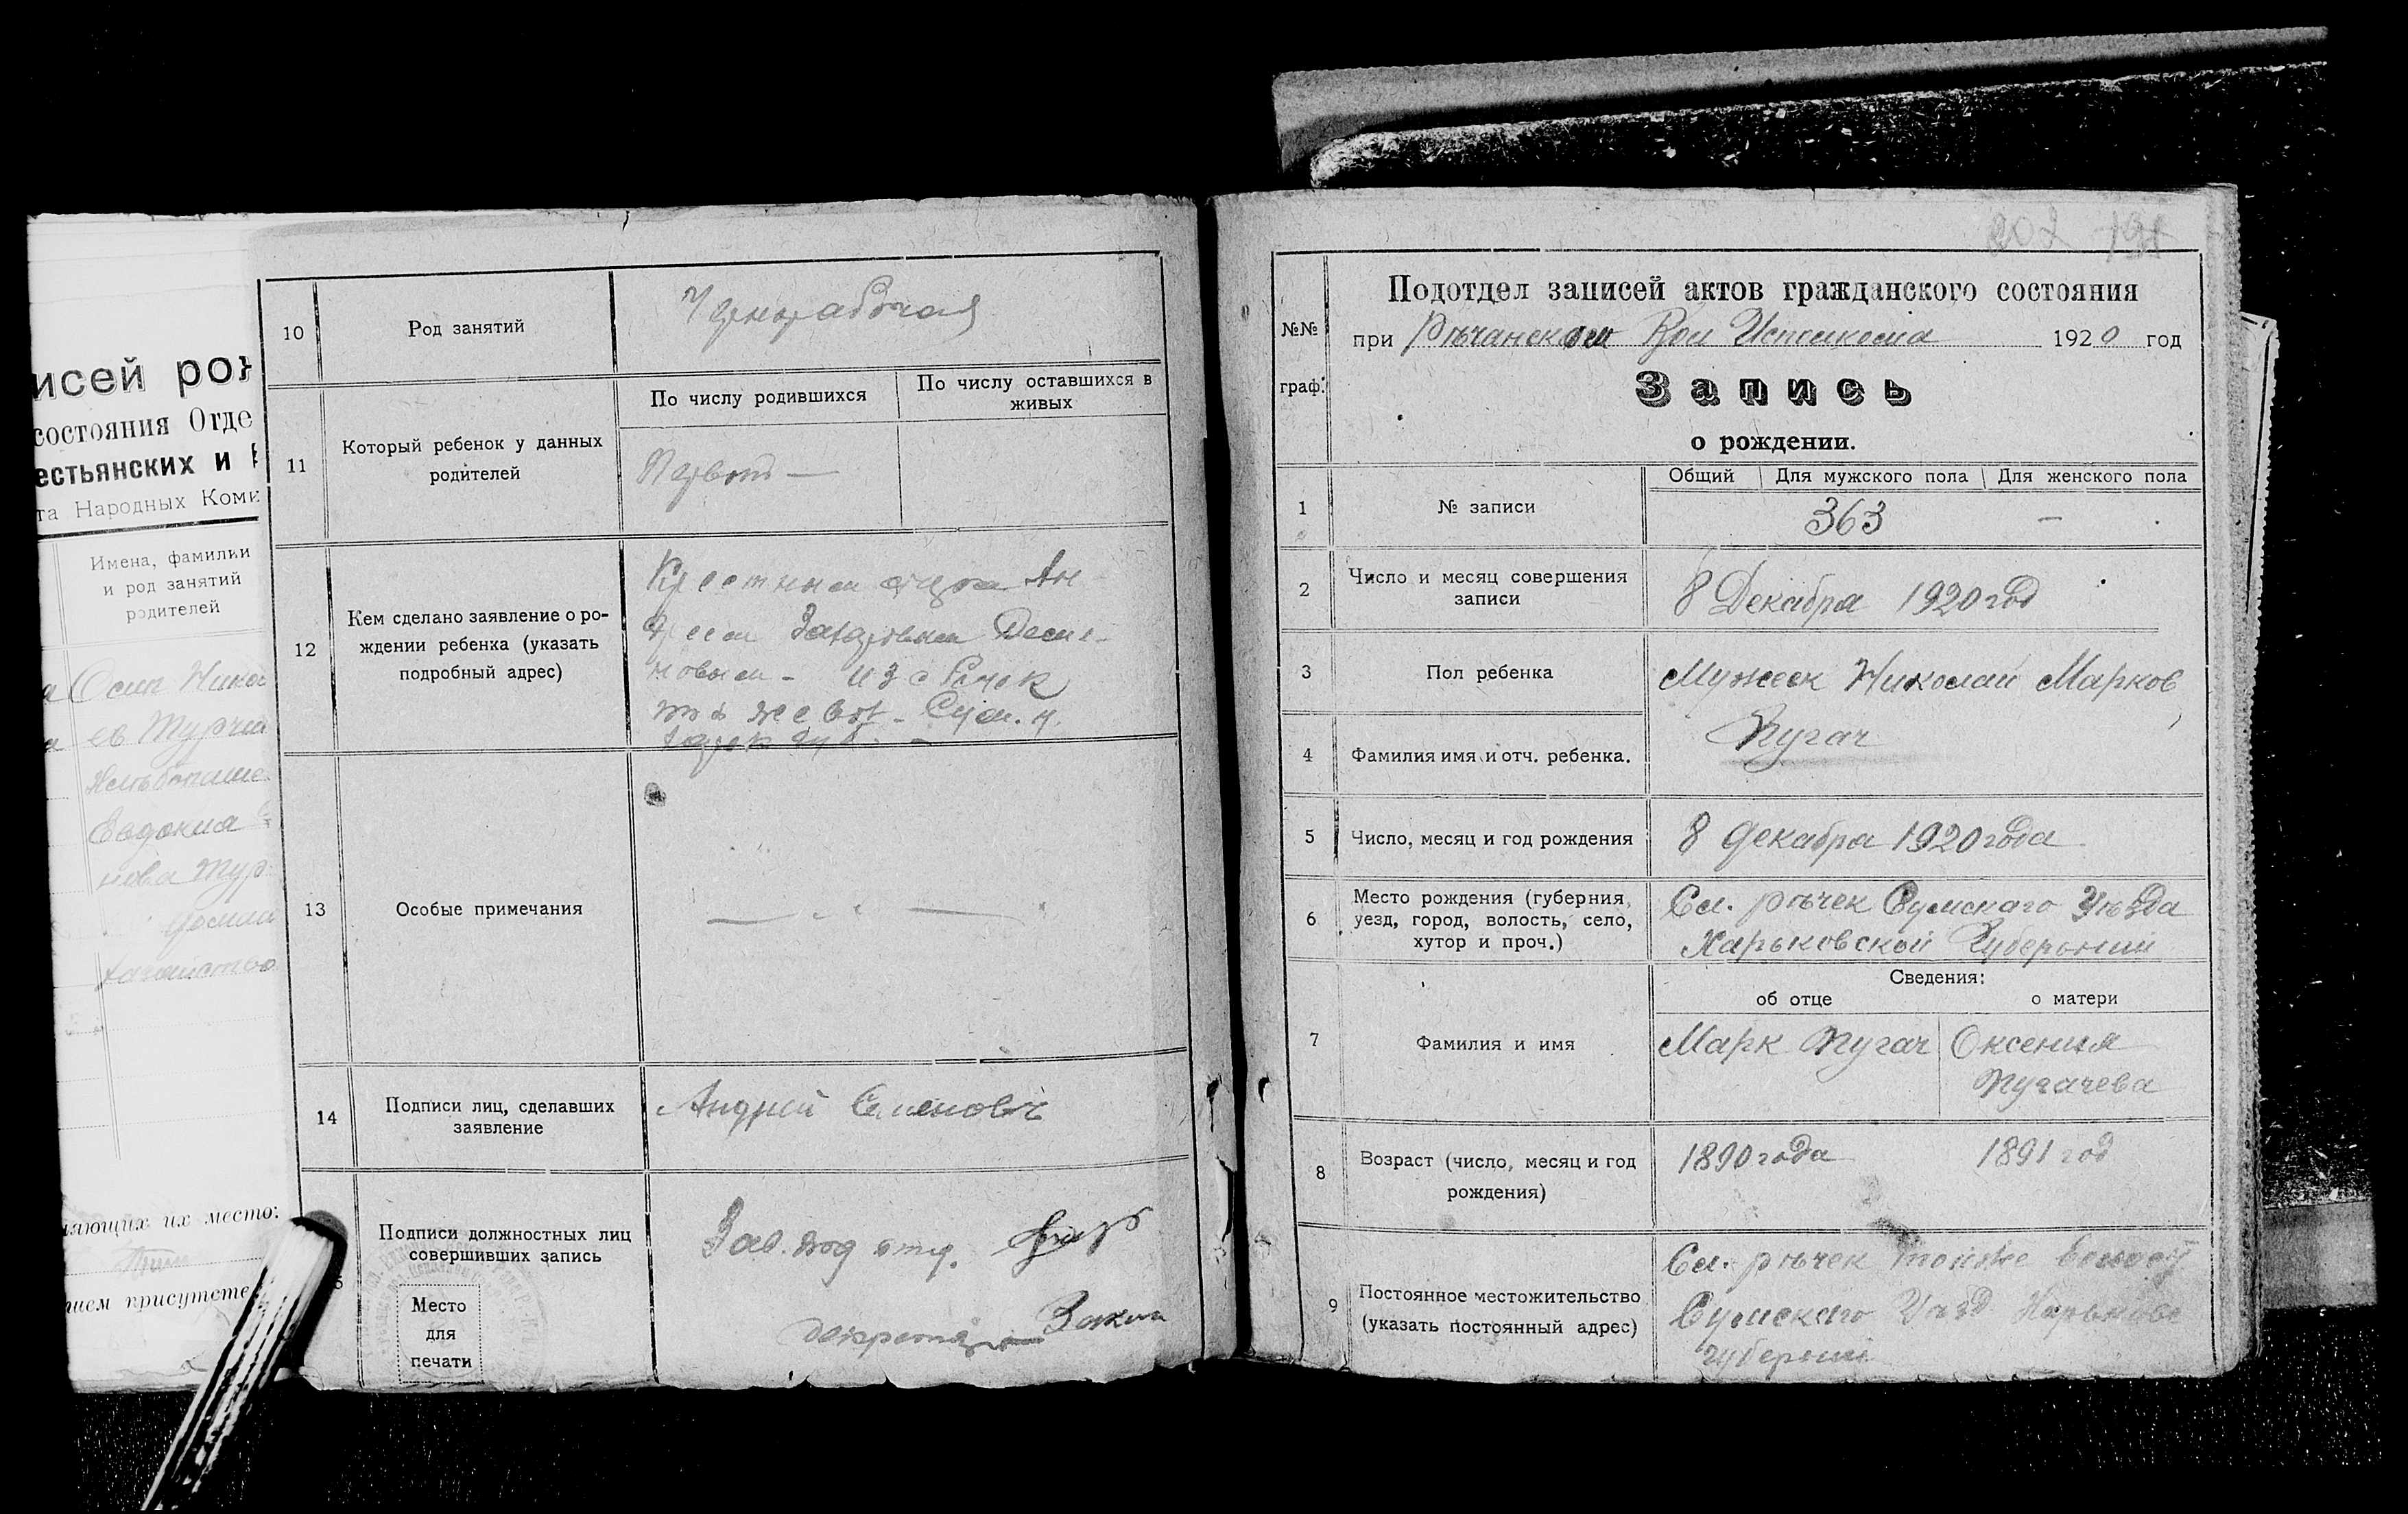 исей рож
состояния Отде
естьянских и
та Народных Коми
Имена, фамилии
и род занятий
родителей
Осип Нико
ев Турчи
Евдокиа
нова Тур
няющих их место:
нием присутств
10
Род занятий
Чернорабочая
11
Который ребенок у данных
родителей
По числу родившихся
По числу оставшихся в
живых
Первый —
12
Кем сделано заявление о ро-
ждении ребенка (указать
подробный адрес)
Крестным отцом Ан
дреем Захаровым
новым - из с Речек
той же вол. Сум. у.
Харьк губ. -
13
Особые примечания
14
Подписи лиц, сделавших
заявление
Андрей Семеновъ
Подписи должностных лиц
совершивших запись
Место
для
печати
Зав. под отд.
Секретарь
207 191
№№
граф.
Подотдел записей актов гражданского состояния
при Рѣчанском Вол Исполкома 1920 год
Запись
о рождении.
1
№ записи
Общий Для мужского пола Для женского пола
363 —
2
Число и месяц совершения
записи
8 Декабря 1920 год
3
Пол ребенка
Мужеск Николай Марков
4
Фамилия имя и отч. ребенка.
Пугач
5
Число, месяц и год рождения
8 декабря 1920 года
6
Место рождения (губерния,
уезд, город, волость, село,
хутор и проч.)
Сл. рѣчек Сумскаго Уѣзда
Харьковской Губернии
Сведения:
об отце о матери
7
Фамилия и имя
Марк Пугач Оксения
Пугачева
8
Возраст (число, месяц и год
рождения)
1890 года 1891 год
9
Постоянное местожительство
(указать постоянный адрес)
Сл. рѣчек тойже волост
Сумскаго Уезд Харьковс
губернии